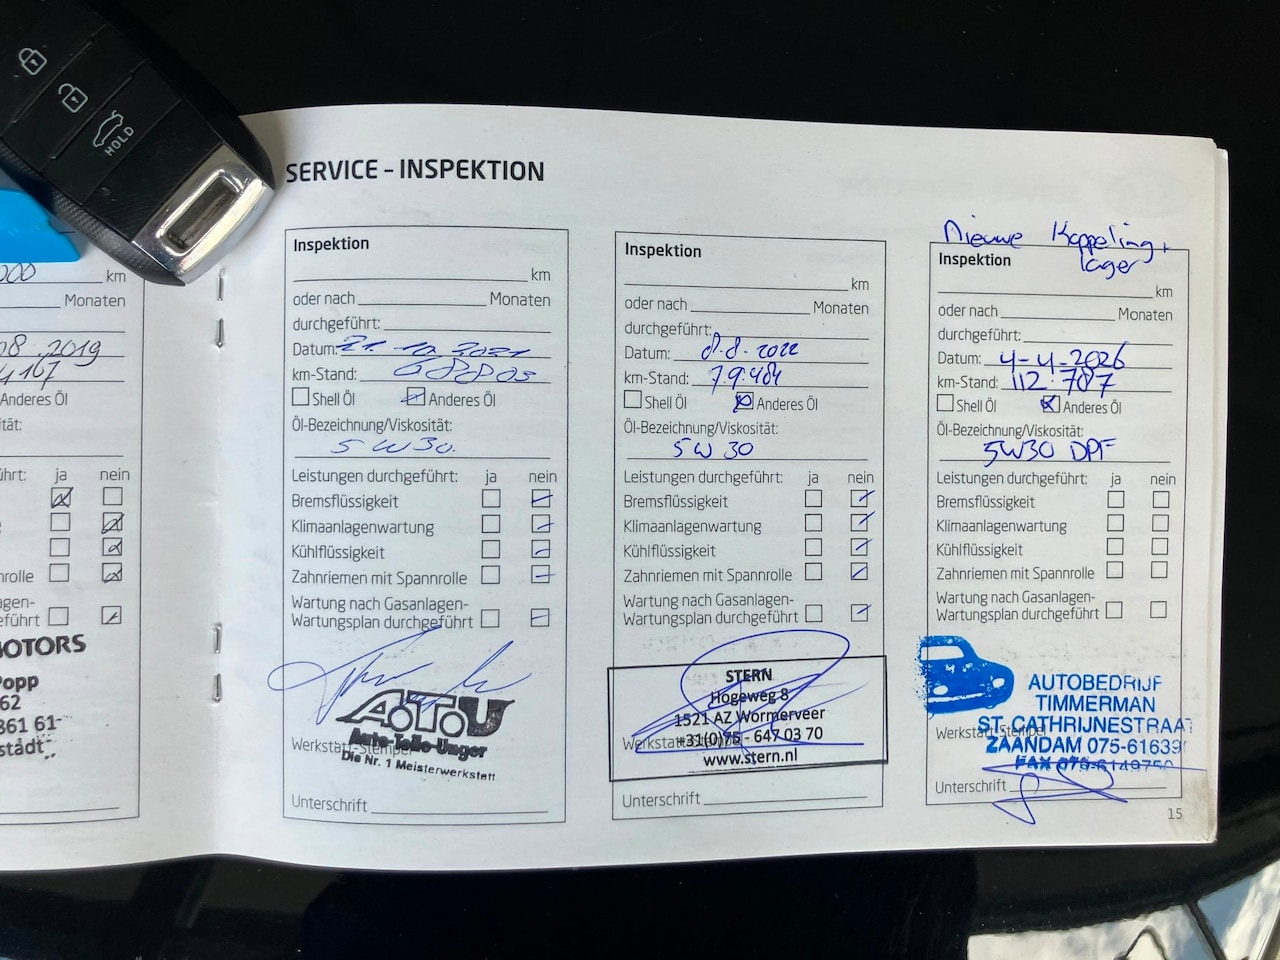 HOLD
SERVICE – INSPEKTION
000 km
Monaten
08.2019
4167
Anderes Öl
tät:
hrt: ja nein
nrolle
agen-
eführt
MOTORS
Popp
62
361 61-
stadt
Inspektion
km
oder nach Monaten
durchgeführt:
Datum: 21.10.2021
km-Stand: 68803
Shell Öl Anderes Öl
Öl-Bezeichnung/Viskosität:
5W30.
Leistungen durchgeführt: ja nein
Bremsflüssigkeit
Klimaanlagenwartung
Kühlflüssigkeit
Zahnriemen mit Spannrolle
Wartung nach Gasanlagen-
Wartungsplan durchgeführt
A.T.U
Auto-Teile-Unger
Werkstatt-Stempel
Die Nr. 1 Meisterwerkstatt
Unterschrift
Inspektion
km
oder nach Monaten
durchgeführt:
Datum: 8.8.2022
km-Stand: 79.484
Shell Öl Anderes Öl
Öl-Bezeichnung/Viskosität:
5W30
Leistungen durchgeführt: ja nein
Bremsflüssigkeit
Klimaanlagenwartung
Kühlflüssigkeit
Zahnriemen mit Spannrolle
Wartung nach Gasanlagen-
Wartungsplan durchgeführt
STERN
Hogeweg 8
1521 AZ Wormerveer
+31(0)75 - 647 03 70
www.stern.nl
Unterschrift
Nieuwe Koppeling +
lager
Inspektion
km
oder nach Monaten
durchgeführt:
Datum: 4-4-2026
km-Stand: 112.787
Shell Öl Anderes Öl
Öl-Bezeichnung/Viskosität:
5W30 DPF
Leistungen durchgeführt: ja nein
Bremsflüssigkeit
Klimaanlagenwartung
Kühlflüssigkeit
Zahnriemen mit Spannrolle
Wartung nach Gasanlagen-
Wartungsplan durchgeführt
AUTOBEDRIJF
TIMMERMAN
ST. CATHRIJNESTRAAT
Werkstatt-Stempel
ZAANDAM 075-61639
FAX 075-6149750
Unterschrift
15